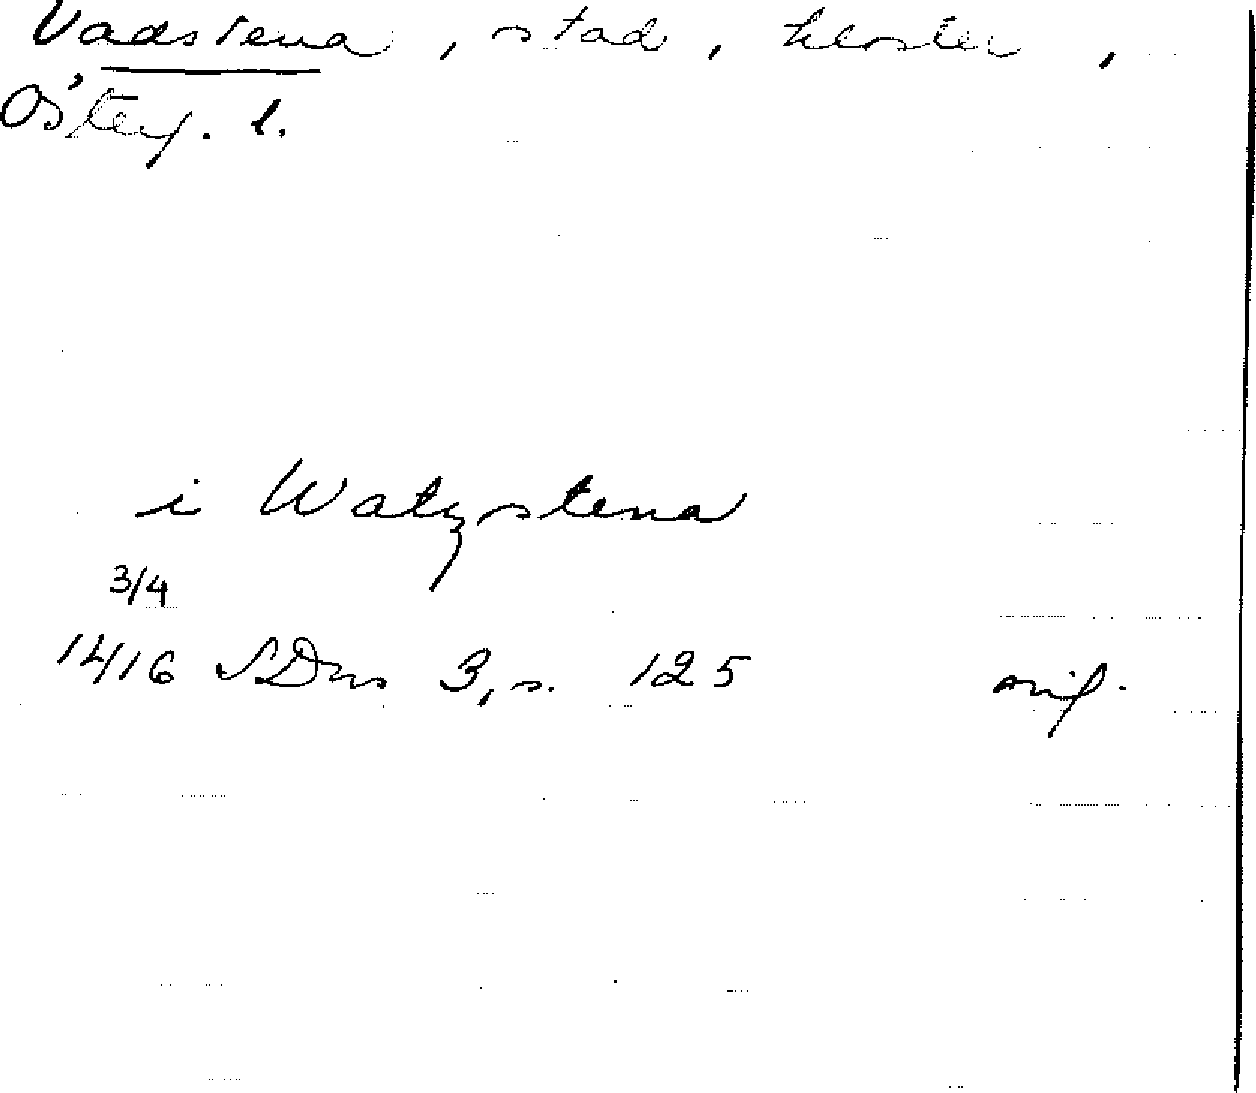 Vadstena, stad, kloster,
Österg. l.
i Watzstena
3/4
1416 SDns 3, s. 125 orig.